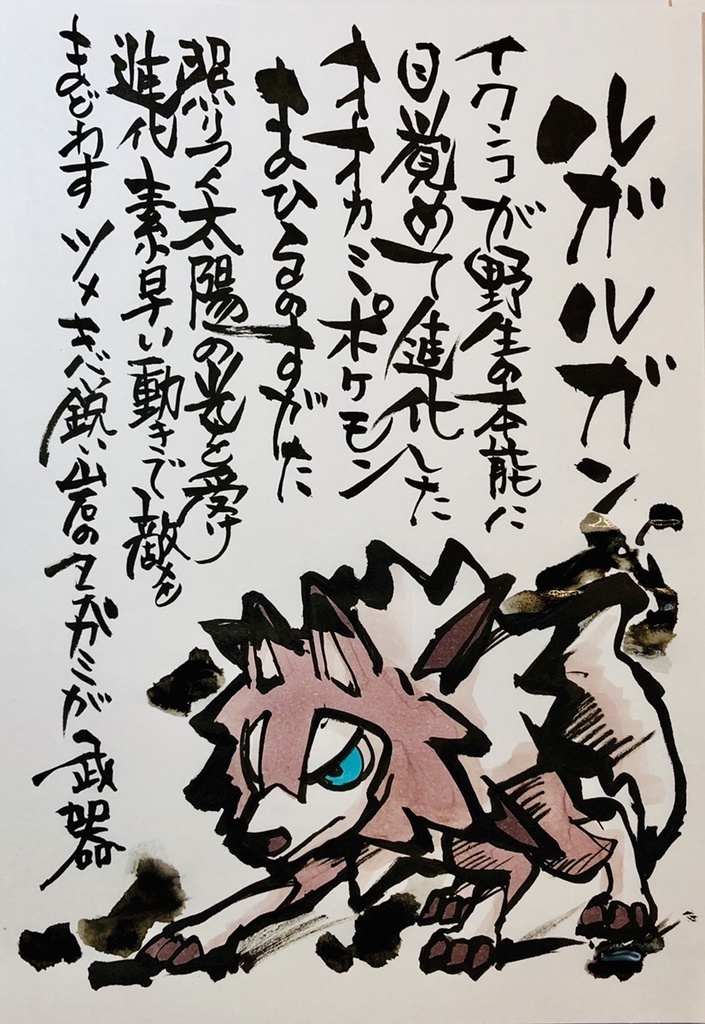 ルガルガン
イワンコが野生の本能に
目覚めて進化した
オオカミポケモン
まひるのすがた
照りつく太陽の光を受け
進化 素早い動きで敵を
まどわす ツメ キバ 鋭い岩のタテガミが 武器